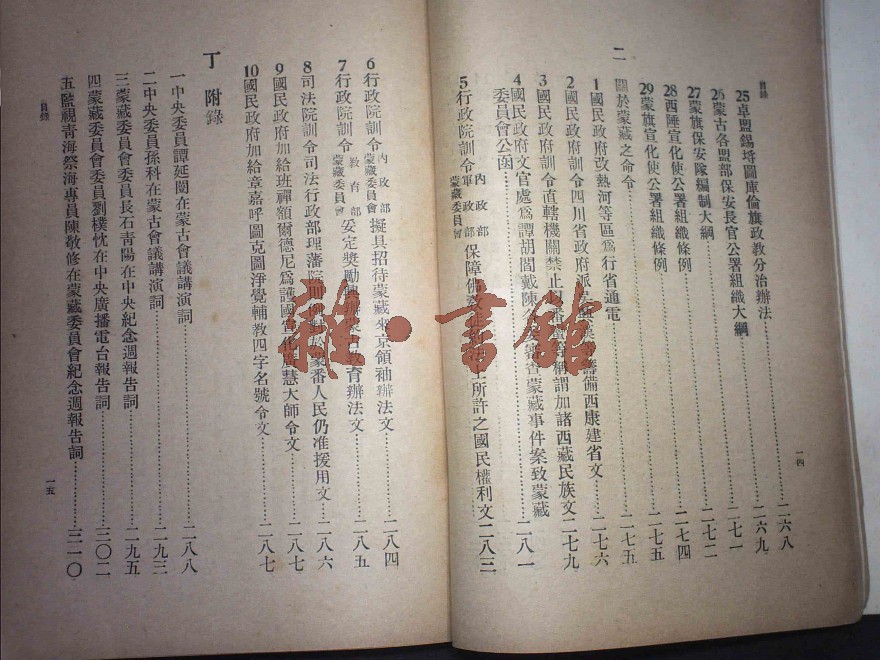 目錄
25卓盟錫埒圖庫倫旗政教分治辦法……二六八
26蒙古各盟部保安長官公署組織大綱……二六九
27蒙旗保安隊編制大綱……二七一
28西陲宣化使公署組織條例……二七二
29蒙旗宣化使公署組織條例……二七四
二 關於蒙藏之命令……二七五
1國民政府改熱河等區為行省通電……二七五
2國民政府訓令四川省政府派籌備西康建省文……二七六
3國民政府訓令直轄機關禁止稱謂加諸西藏民族文二七九
4國民政府文官處為譚胡閻戴陳審查蒙藏事件案致蒙藏
委員會公函……二八一
5行政院訓令內政部軍政部蒙藏委員會保障佛教所許之國民權利文二八三
一四
6行政院訓令內政部蒙藏委員會擬具招待蒙藏來京領袖辦法文……二八四
7行政院訓令教育部蒙藏委員會妥定獎勵興辦教育辦法文……二八五
8司法院訓令司法行政部理藩院則例對於蒙番人民仍准援用文……二八六
9國民政府加給班禪額爾德尼為護國宣化廣慧大師令文……二八七
10國民政府加給章嘉呼圖克圖淨覺輔教四字名號令文……二八七
丁 附錄
一中央委員譚延闓在蒙古會議講演詞……二八八
二中央委員孫科在蒙古會議講演詞……二九三
三蒙藏委員會委員長石青陽在中央紀念週報告詞……二九五
四蒙藏委員會委員劉樸忱在中央廣播電台報告詞……三〇二
五監視青海祭海專員陳敬修在蒙藏委員會紀念週報告詞……三一〇
目錄
一五
雜·書館